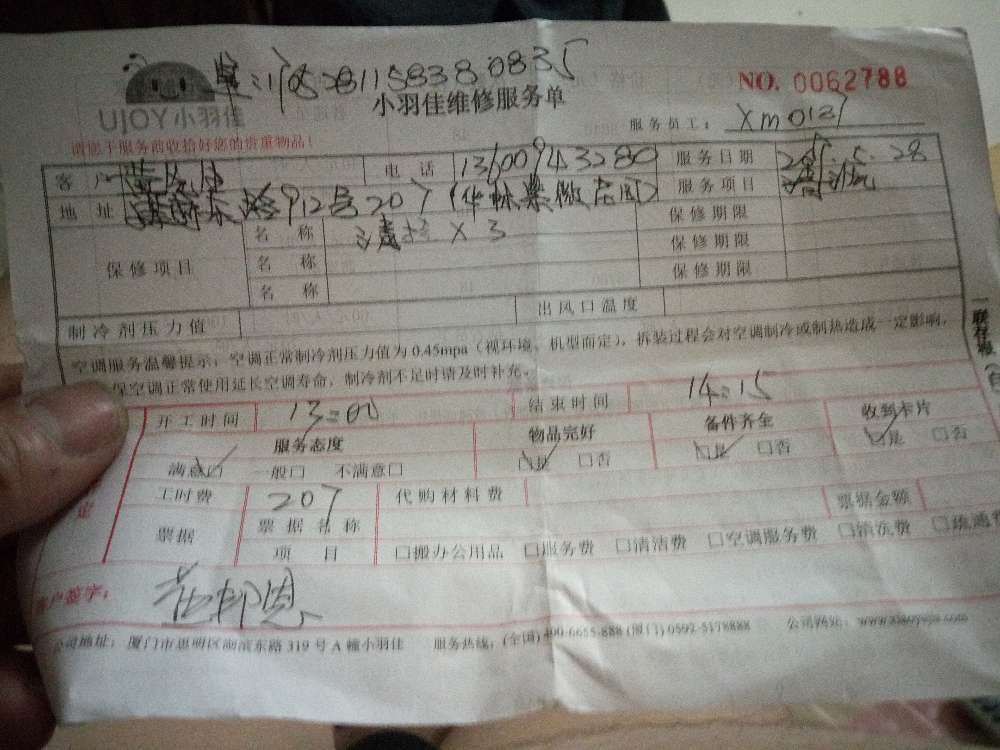 1705281158380835
NO. 0062788
UJOY小羽佳
小羽佳维修服务单
请您于服务前收拾好您的贵重物品！
服务员工：xm0127
客户 电话 13600943280 服务日期 5.28
地址 912号207 服务项目 清洗
保修项目 名称 清 X 3 保修期限
名称 保修期限
名称 保修期限
制冷剂压力值 出风口温度
空调服务温馨提示：空调正常制冷剂压力值为0.45mpa（视环境、机型而定），拆装过程会对空调制冷或制热造成一定影响，
保空调正常使用延长空调寿命，制冷剂不足时请及时补充。
一联存根
开工时间 13:00 结束时间 14:15
服务态度 物品完好 备件齐全 收到卡片
满意□ 一般□ 不满意□ □是 □否 □是 □否 □是 □否
定
工时费 207 代购材料费
票据 票据名称 票据金额
项目 □搬办公用品 □服务费 □清洁费 □空调服务费 □清洗费 □疏通费
客户签字：
公司地址：厦门市思明区湖滨东路319号A幢小羽佳 服务热线：(全国)400-6655-888 (厦门)0592-5178888 公司网址：